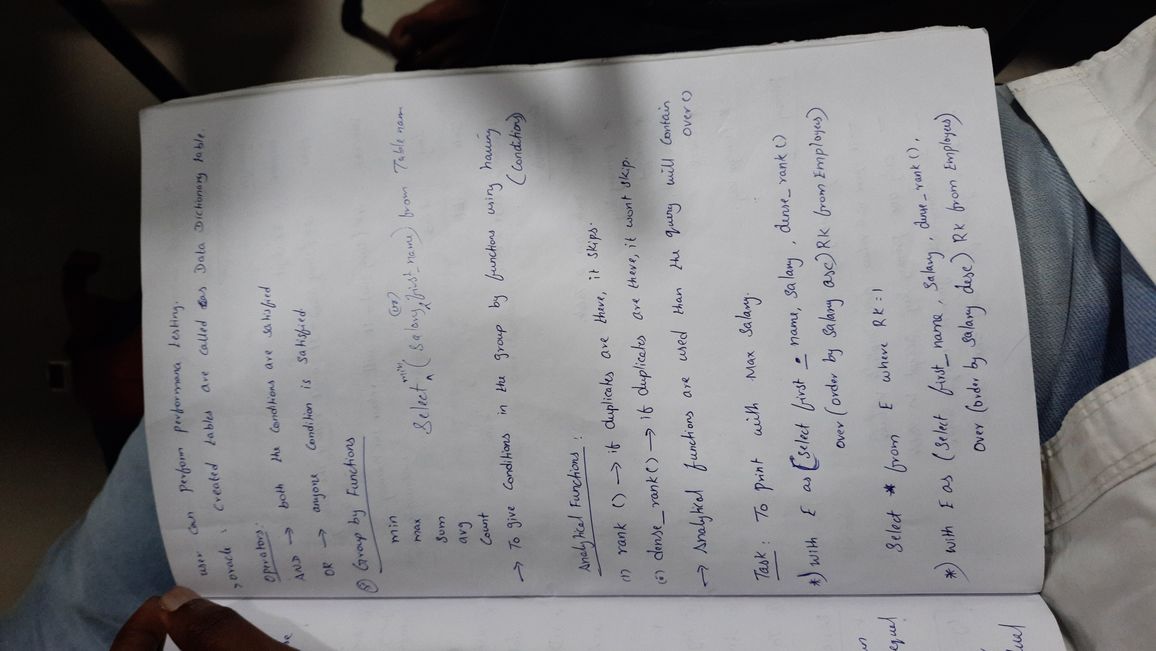 user can perform performana testing.
oracle : Created tables are called as Data Dictionary table.
Operators:
AND → both the Conditions are satisfied
OR → anyone Condition is satisfied
Group by Functions
min
max
Sum
avg
Count
Select min (Salary (or) first_name) from Table name
→ To give Conditions in the group by functions using having
(Condition)
Analytical Functions :
(i) rank () → if duplicates are there, it skips.
(ii) dense_rank() → if duplicates are there, it wont skip.
→ Analytical functions are used than the query will Contain
over()
Task : To print with Max Salary.
*) with E as (Select first _ name, Salary , dense_rank()
over (order by Salary asc) RK from Employees)
Select * from E where RK=1
*) with E as (Select first_name , Salary , dense_rank(),
Over (order by Salary desc) RK from Employees)
equal